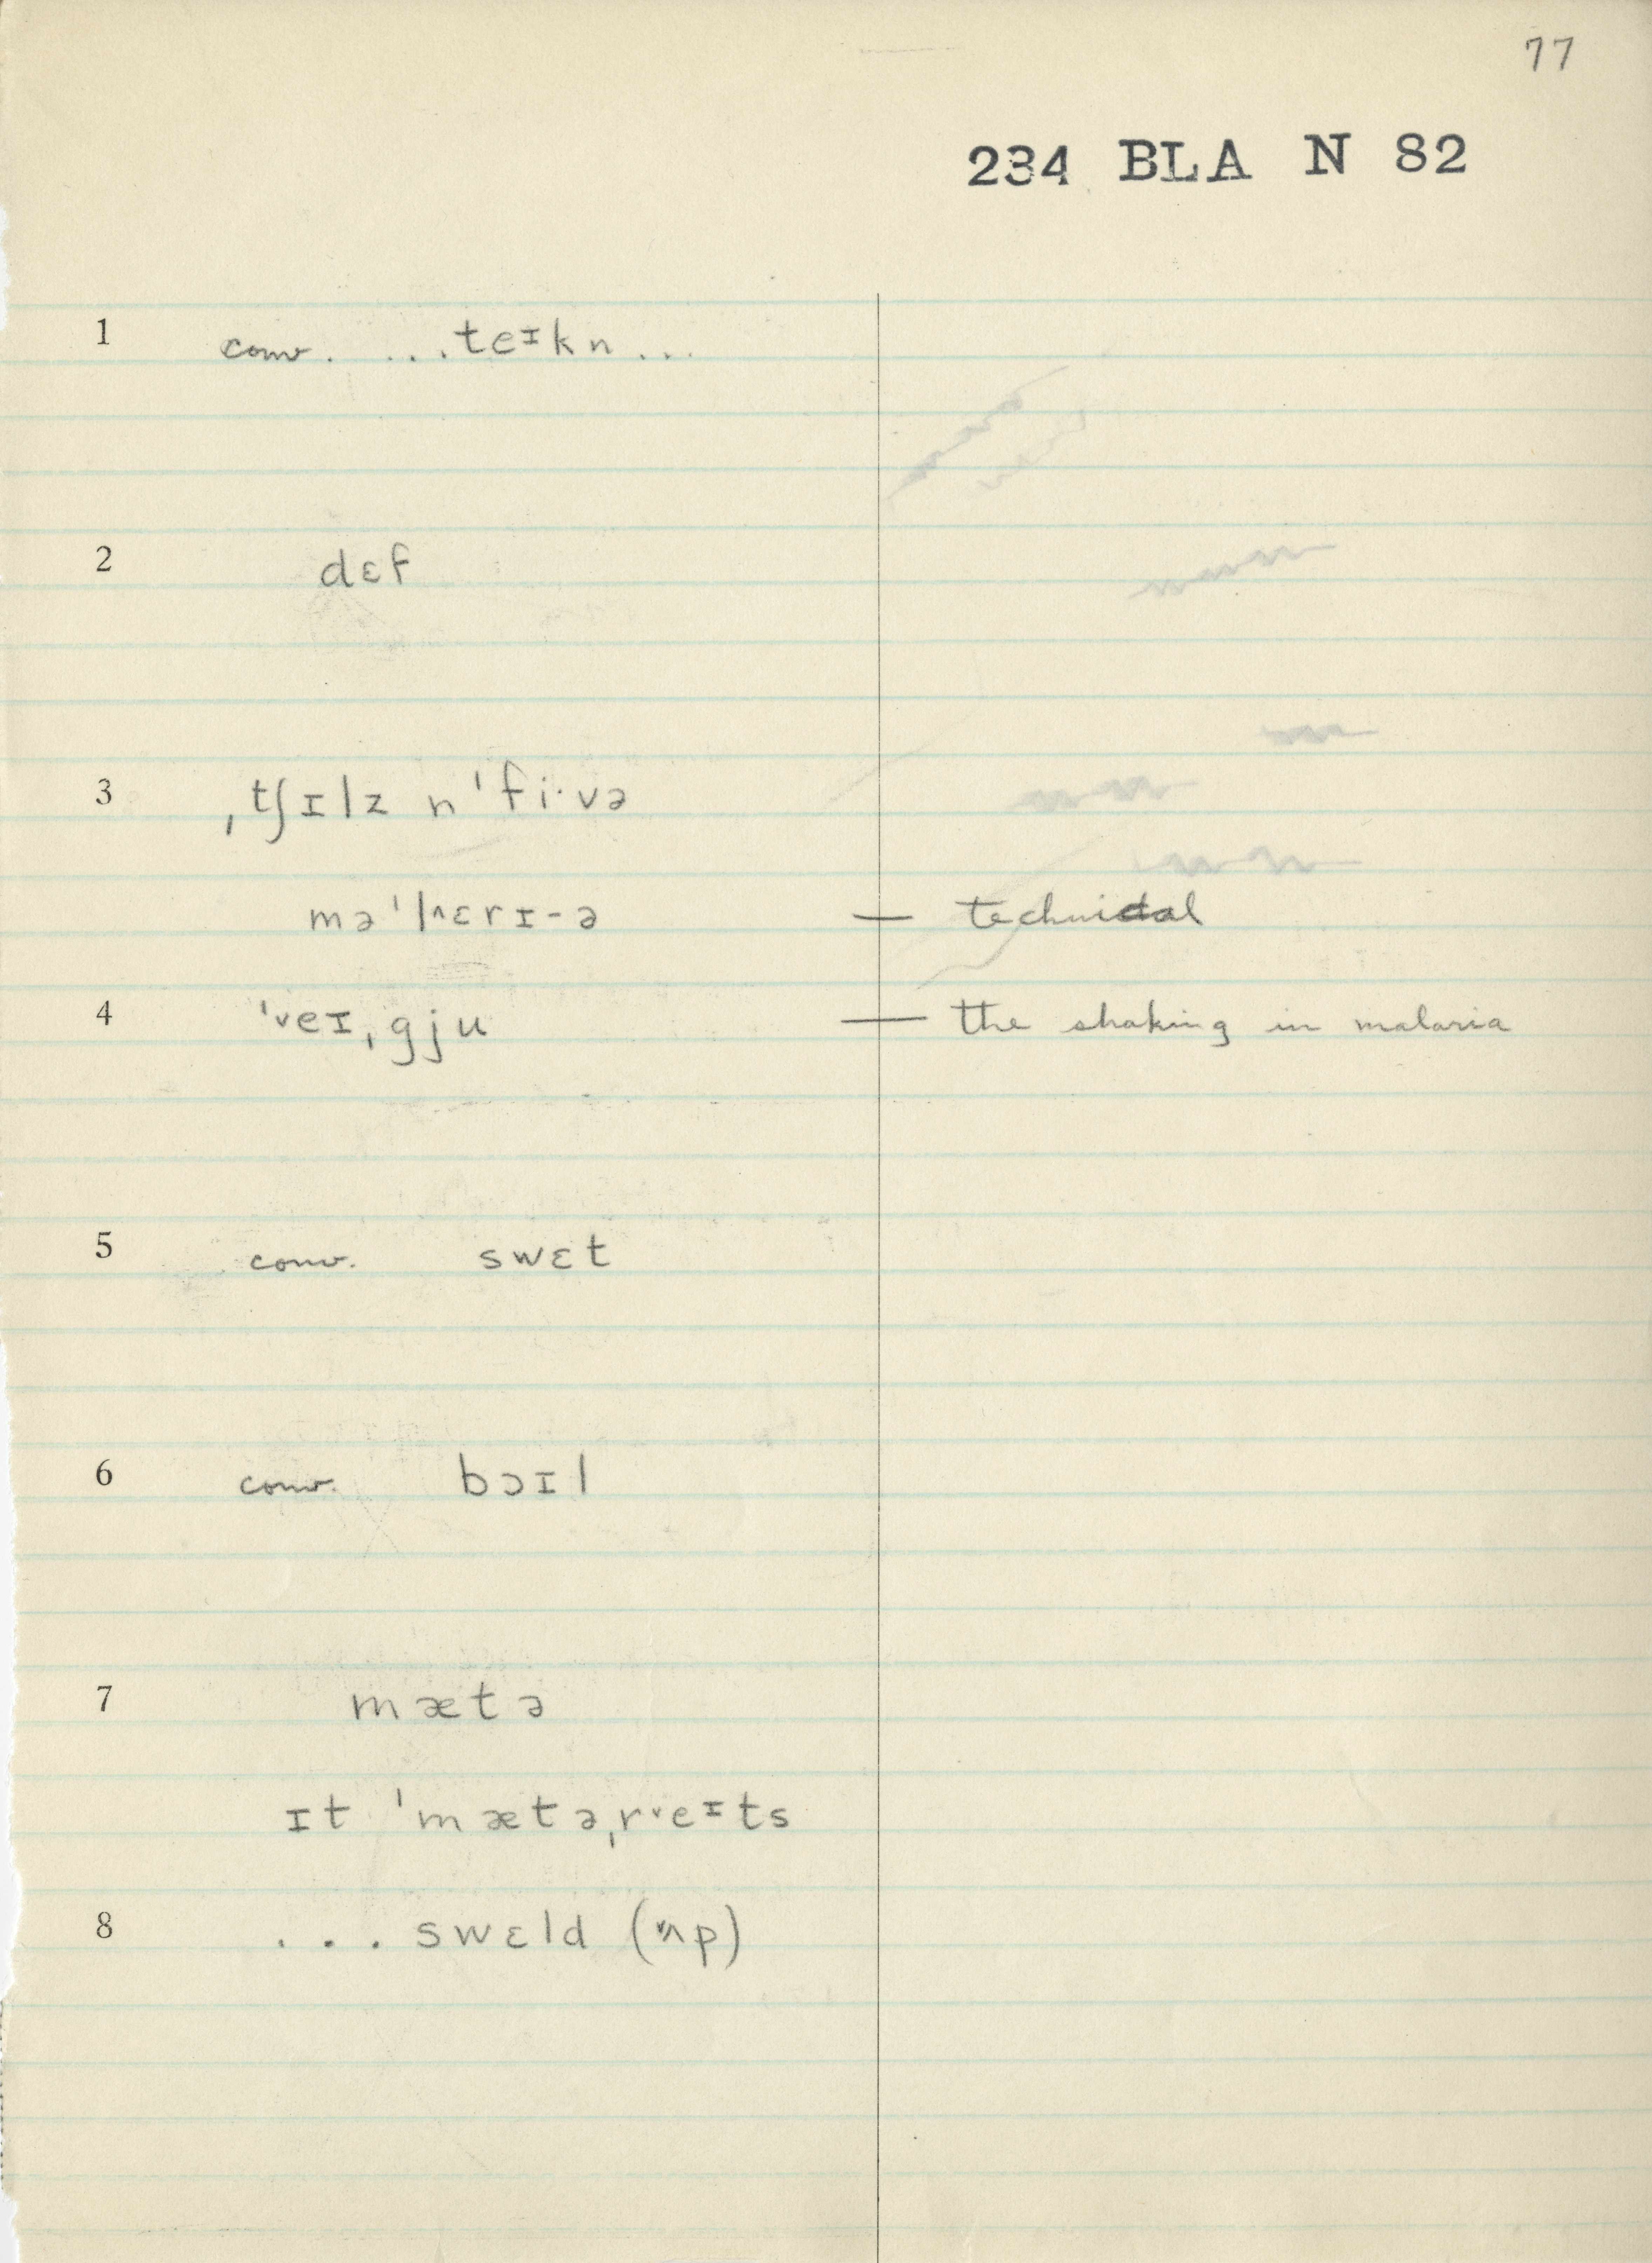 77
234 BLA N 82
1 conv. ...teɪkn...
2 dɛf
3 ˌtʃɪlz n ˈfi·və
məˈl^ɛrɪ-ə — technical
4 ˈveɪˌgju — the shaking in malaria
5 conv. swɛt
6 conv. bɔɪl
7 mætə
ɪt ˈmætəˌrᵛeɪts
8 ... swɛld (ʌp)